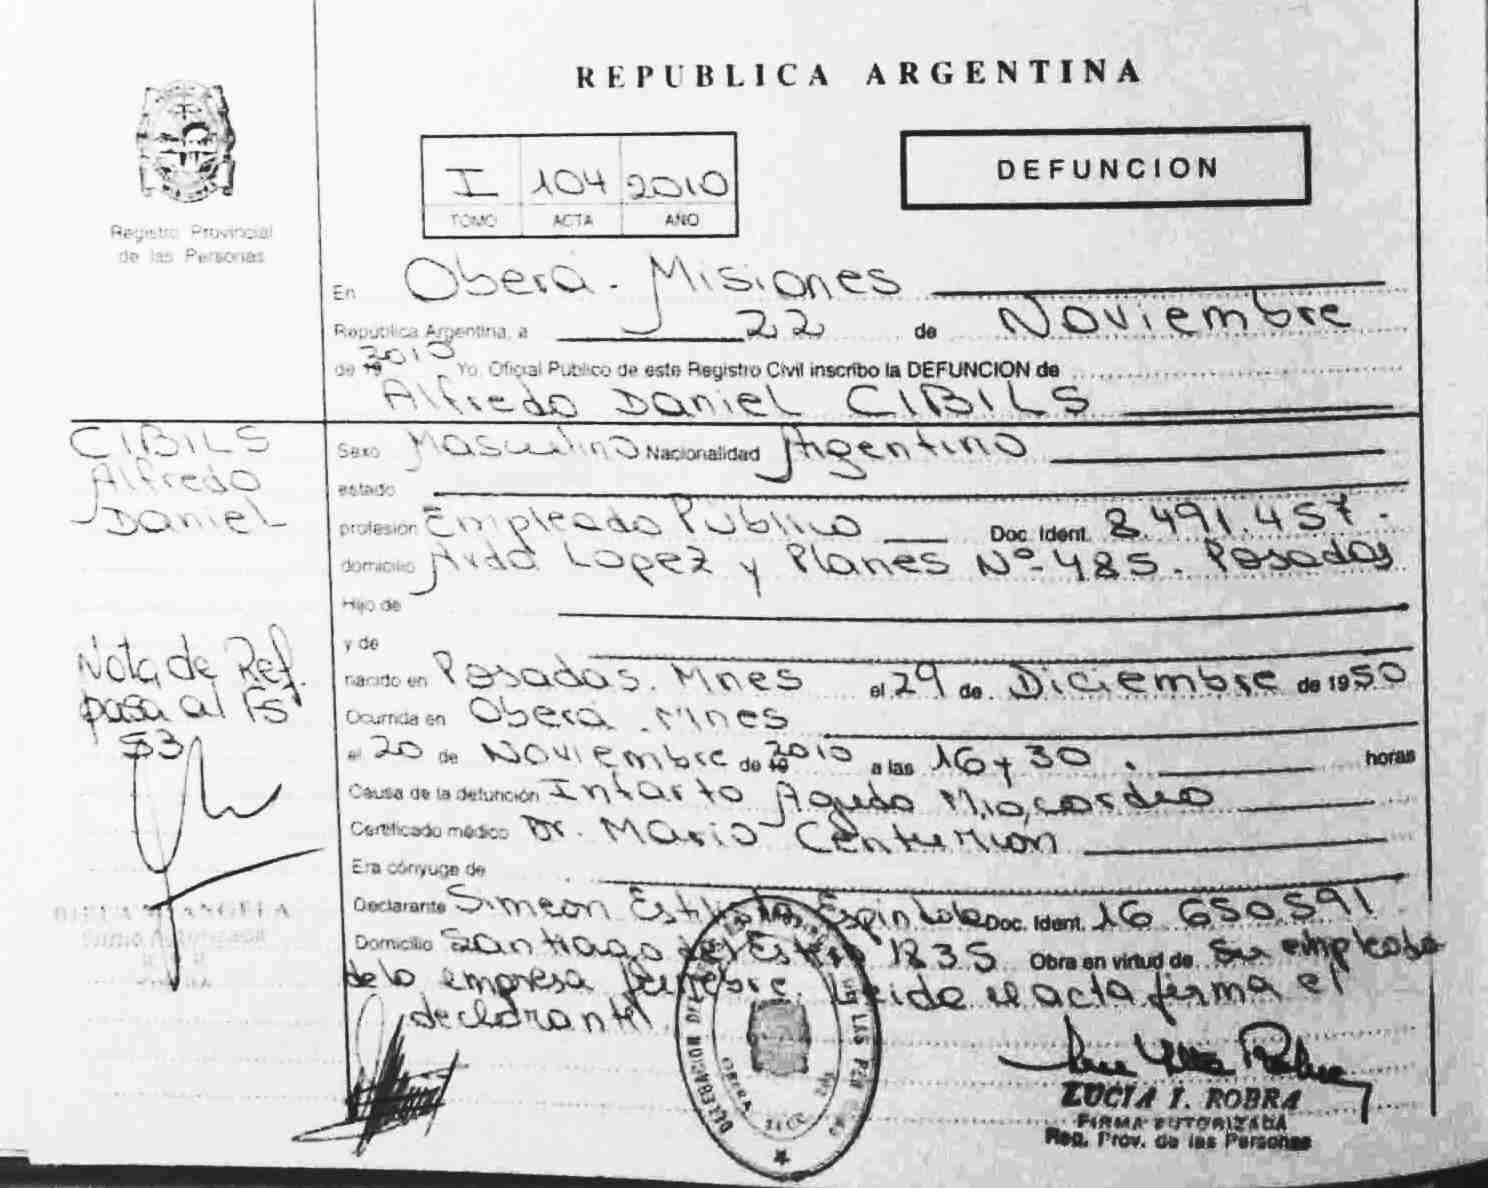 REPUBLICA ARGENTINA
Registro Provincial
de las Personas
I 104 2010
TOMO ACTA AÑO
DEFUNCION
En Oberá - Misiones
República Argentina, a 22 de Noviembre
de 19 2010 Yo, Oficial Público de este Registro Civil inscribo la DEFUNCION de
Alfredo Daniel CIBILS
CIBILS
Alfredo
Daniel
Sexo Masculino Nacionalidad Argentino
estado
profesion Empleado Público Doc. Ident. 8.491.457.
domicilio Avda Lopez y Planes Nº 485. Posadas
Hijo de
y de
nacido en Posadas. Mnes el 29 de Diciembre de 1950
Ocurrida en Oberá. Mnes
el 20 de Noviembre de 19 2010 a las 16 y 30. horas
Causa de la defunción Infarto Agudo Miocardio
Certificado médico Dr. Mario Centurion
Era cónyuge de
Declarante Simeon Espindola Doc. Ident. 16 650.591
Domicilio Santiago del Estero 1835 Obra en virtud de Ser empleado
de la empresa fúnebre. Leída el acta firma el
declarante
Nota de Ref.
pasa al Fs
53
LUCIA I. ROBRA
FIRMA AUTORIZADA
Reg. Prov. de las Personas